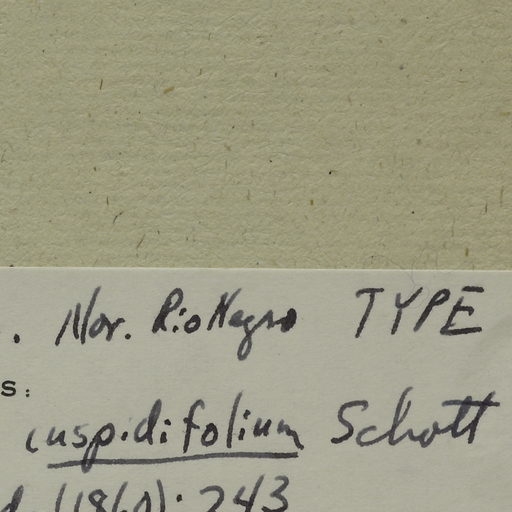 . Nov. Rio Negro TYPE
S:
cuspidifolium Schott
(1860): 243